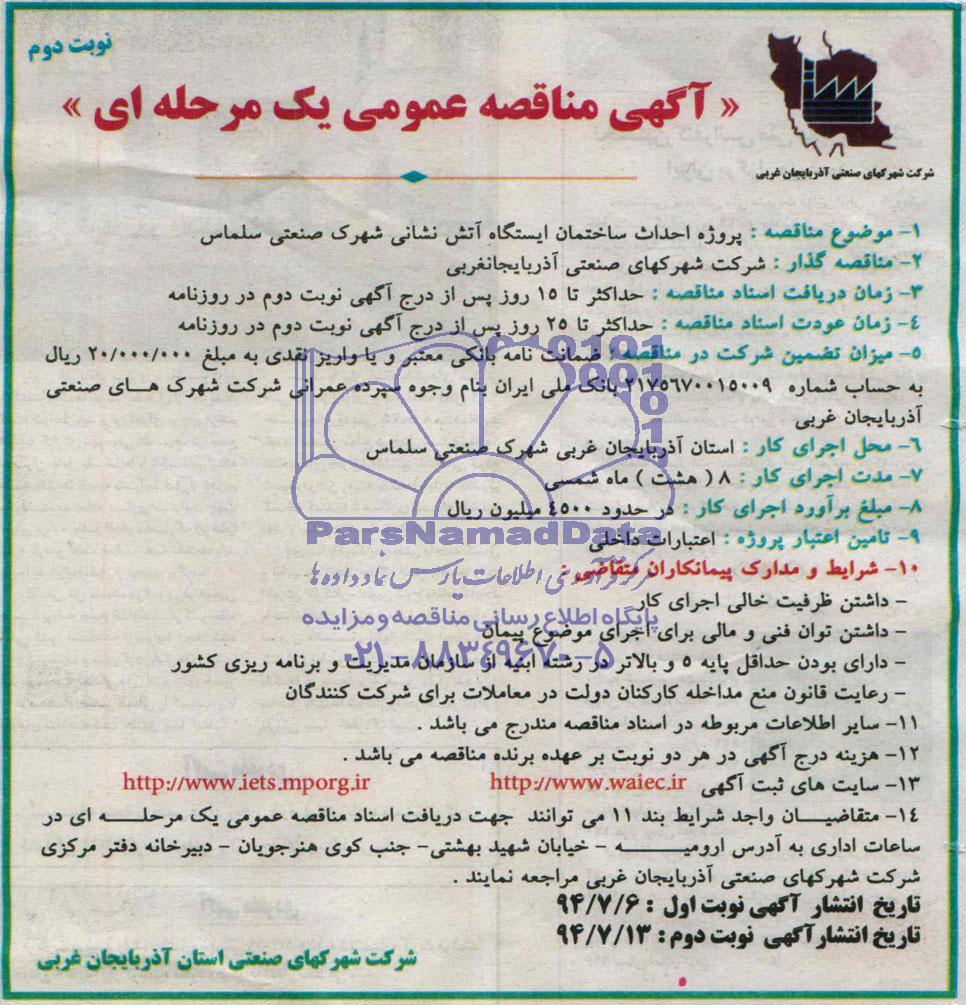 نوبت دوم
« آگهی مناقصه عمومی یک مرحله ای »
شرکت شهرکهای صنعتی آذربایجان غربی
۱- موضوع مناقصه : پروژه احداث ساختمان ایستگاه آتش نشانی شهرک صنعتی سلماس
۲- مناقصه گذار : شرکت شهرکهای صنعتی آذربایجانغربی
۳- زمان دریافت اسناد مناقصه : حداکثر تا ۱۵ روز پس از درج آگهی نوبت دوم در روزنامه
۴- زمان عودت اسناد مناقصه : حداکثر تا ۲۵ روز پس از درج آگهی نوبت دوم در روزنامه
۵- میزان تضمین شرکت در مناقصه : ضمانت نامه بانکی معتبر و یا واریز نقدی به مبلغ ۲۰/۰۰۰/۰۰۰ ریال
به حساب شماره ۲۱۷۵۶۷۰۰۱۵۰۰۹ بانک ملی ایران بنام وجوه سپرده عمرانی شرکت شهرک هـای صنعتی
آذربایجان غربی
۶- محل اجرای کار : استان آذربایجان غربی شهرک صنعتی سلماس
۷- مدت اجرای کار : ۸ ( هشت ) ماه شمسی
۸- مبلغ برآورد اجرای کار : در حدود ۴۵۰۰ میلیون ریال
ParsNamadData
۹- تامین اعتبار پروژه : اعتبارات داخلی
مرکز فرآوری اطلاعات پارس نماد داده ها
۱۰- شرایط و مدارک پیمانکاران متقاضی :
- داشتن ظرفیت خالی اجرای کار
پایگاه اطلاع رسانی مناقصه و مزایده
- داشتن توان فنی و مالی برای اجرای موضوع پیمان
۰۲۱-۸۸۳۴۹۶۷۰-۵
- دارای بودن حداقل پایه ۵ و بالاتر در رشته ابنیه از سازمان مدیریت و برنامه ریزی کشور
- رعایت قانون منع مداخله کارکنان دولت در معاملات برای شرکت کنندگان
۱۱- سایر اطلاعات مربوطه در اسناد مناقصه مندرج می باشد .
۱۲- هزینه درج آگهی در هر دو نوبت بر عهده برنده مناقصه می باشد .
۱۳- سایت های ثبت آگهی http://www.waiec.ir http://www.iets.mporg.ir
۱۴- متقاضیـــان واجد شرایط بند ۱۱ می توانند جهت دریافت اسناد مناقصه عمومی یک مرحلـــه ای در
ساعات اداری به آدرس ارومیـــــه - خیابان شهید بهشتی- جنب کوی هنرجویان - دبیرخانه دفتر مرکزی
شرکت شهرکهای صنعتی آذربایجان غربی مراجعه نمایند .
تاریخ انتشار آگهی نوبت اول : ۹۴/۷/۶
تاریخ انتشارآگهی نوبت دوم : ۹۴/۷/۱۳
شرکت شهرکهای صنعتی استان آذربایجان غربی